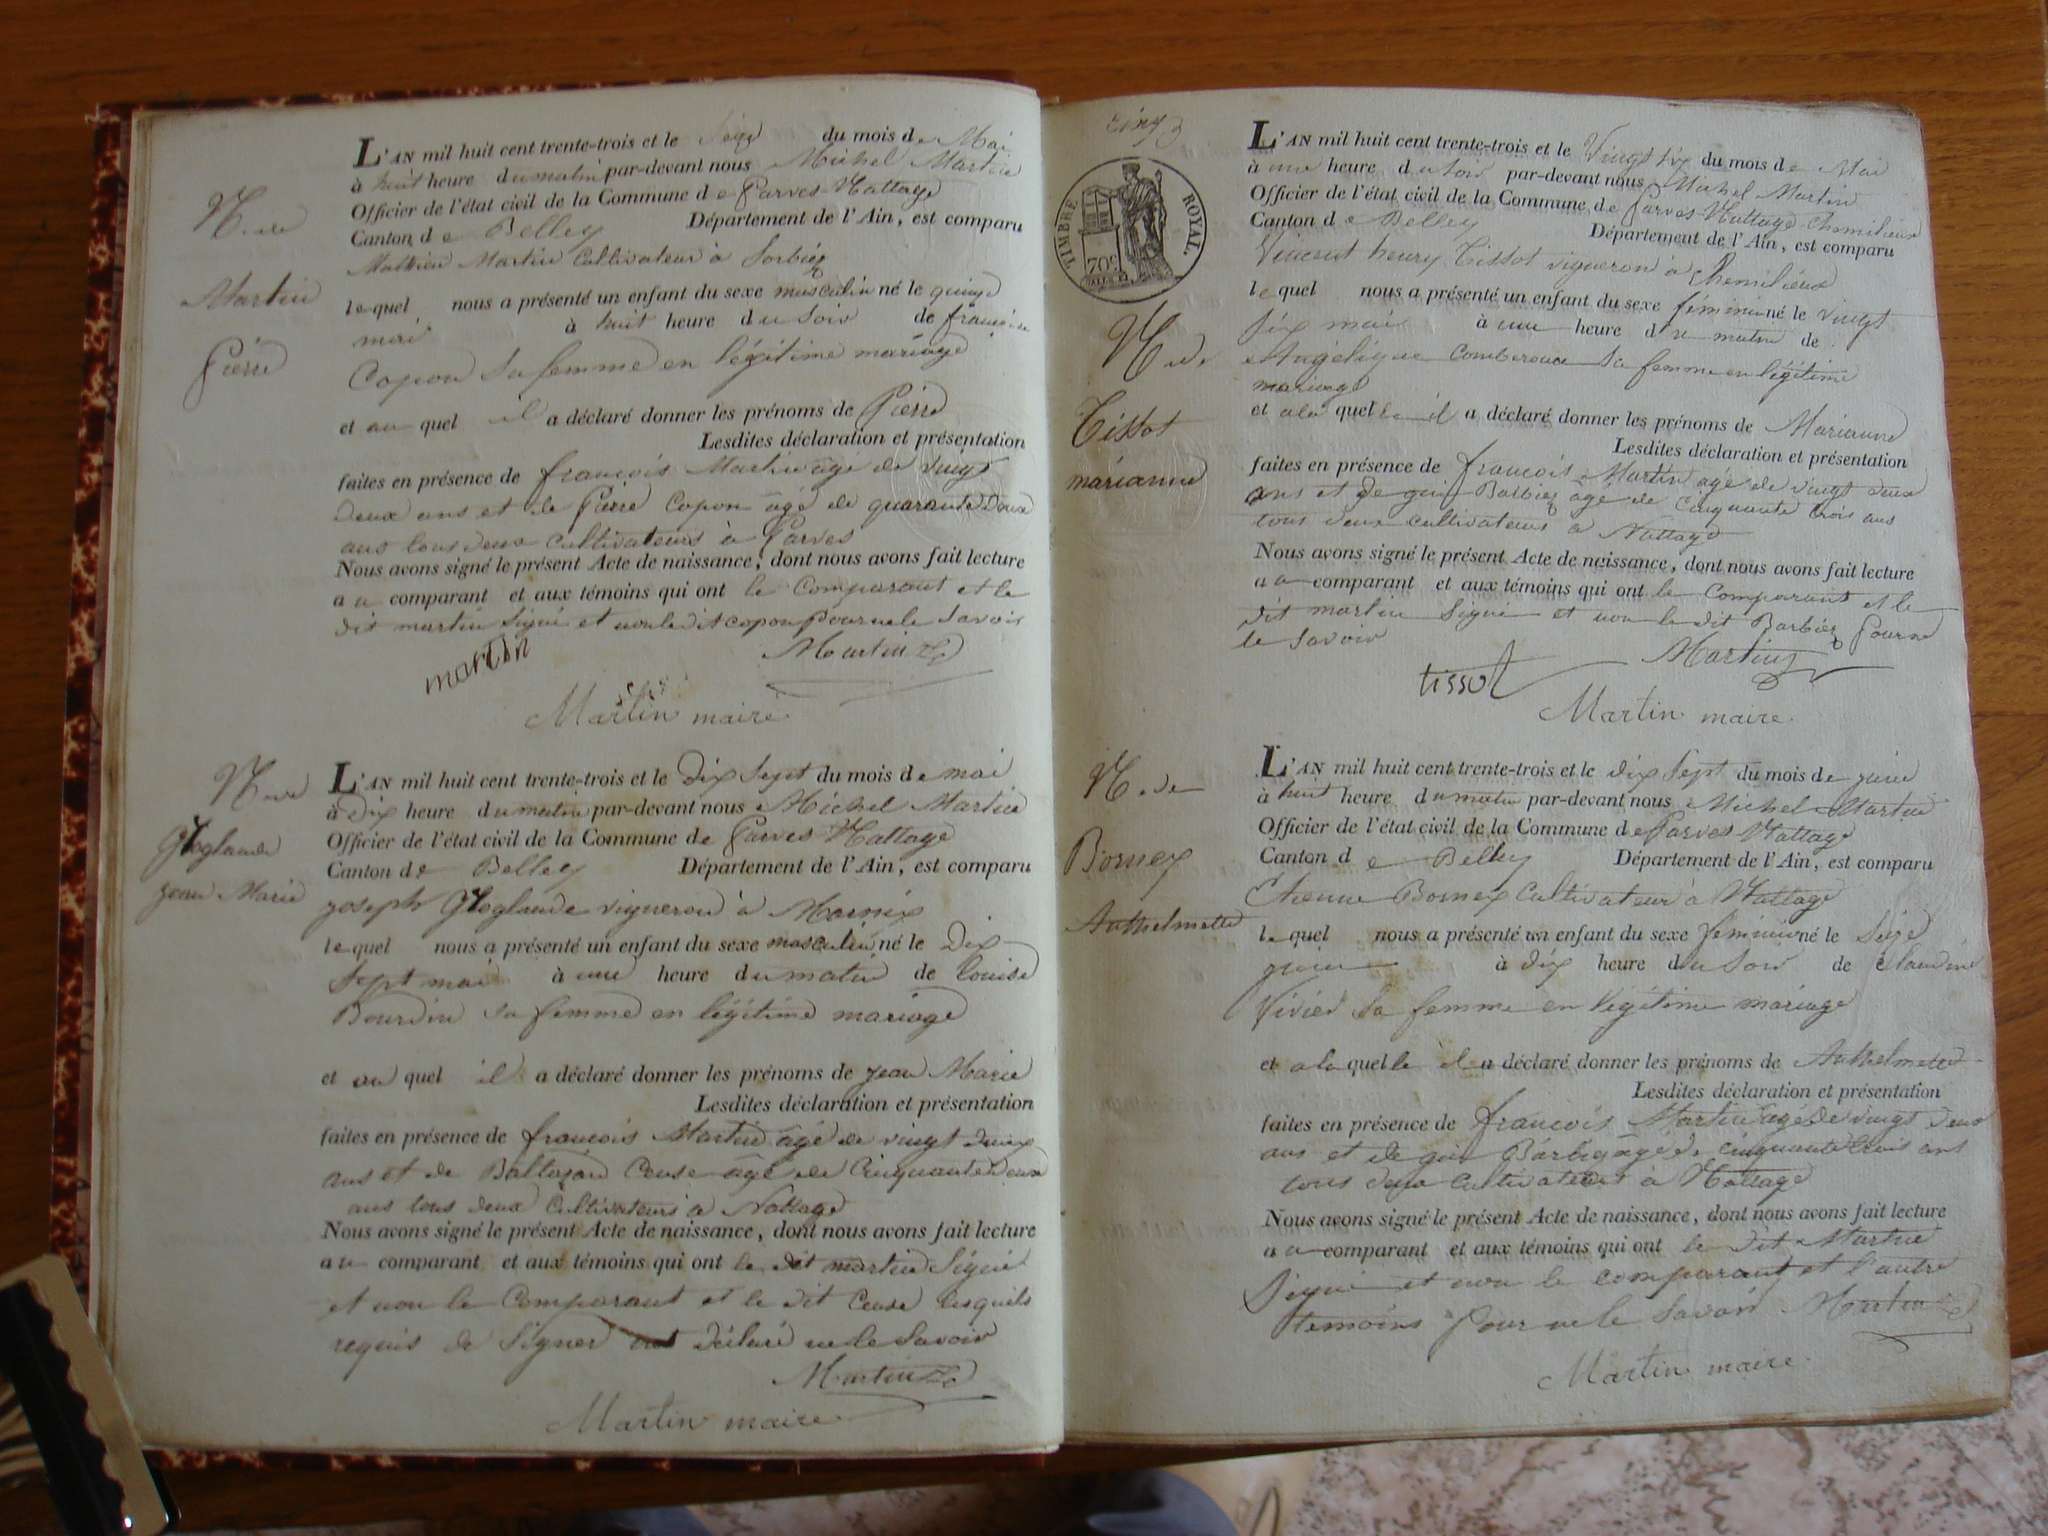 L'AN mil huit cent trente-trois et le Seize du mois de Mai
à huit heure du matin par-devant nous Michel Martin
Officier de l'état civil de la Commune de Parves-Nattage
Canton de Belley Département de l'Ain, est comparu
Mathieu Martin Cultivateur à Sorbiez
N. de
Martin
Pierre
lequel nous a présenté un enfant du sexe masculin né le quinze
mai à huit heure du soir de françoise
Copon sa femme en légitime mariage
et au quel il a déclaré donner les prénoms de Pierre
Lesdites déclaration et présentation
faites en présence de françois Martin âgé de vingt
deux ans et de Pierre Copon âgé de quarante deux
ans tous deux cultivateurs à Parves
Nous avons signé le présent Acte de naissance, dont nous avons fait lecture
au comparant et aux témoins qui ont le Comparant et le
dit martin signé et non le dit copon Pour ne le savoir
martin Martin
Martin maire
L'AN mil huit cent trente-trois et le Dix Sept du mois de mai
à Dix heure du matin par-devant nous Michel Martin
Officier de l'état civil de la Commune de Parves Nattage
Canton de Belley Département de l'Ain, est comparu
N. de
jean Marie
joseph vigneron à Marnix
lequel nous a présenté un enfant du sexe masculin né le Dix
Sept mai à une heure du matin de Louise
Bourdin sa femme en légitime mariage
et au quel il a déclaré donner les prénoms de jean Marie
Lesdites déclaration et présentation
faites en présence de françois Martin âgé de vingt deux
ans et de Baltazard Ceuse âgé de Cinquante deux
ans tous deux Cultivateurs à Nattage
Nous avons signé le présent Acte de naissance, dont nous avons fait lecture
au comparant et aux témoins qui ont le dit martin Signé
et non le Comparant et le dit Ceuse lesquels
requis de Signer ont déclaré ne le Savoir
Martin
Martin maire
cinq
TIMBRE ROYAL.
70c
L'AN mil huit cent trente-trois et le Vingt six du mois de Mai
à une heure du soir par-devant nous Michel Martin
Officier de l'état civil de la Commune de Parves Nattage Chemilieux
Canton de Belley Département de l'Ain, est comparu
Vincent henry Tissot vigneron à Chemilieux
N. de
Tissot
marianne
lequel nous a présenté un enfant du sexe féminin né le vingt
six mai à une heure du matin de
Angélique sa femme en légitime
mariage
et a la quelle il a déclaré donner les prénoms de Marianne
Lesdites déclaration et présentation
faites en présence de françois Martin âgé de vingt deux
ans et de gui Barbiez âgé de Cinquante trois ans
tous deux cultivateurs à Nattage
Nous avons signé le présent Acte de naissance, dont nous avons fait lecture
au comparant et aux témoins qui ont le Comparant et le
dit martin Signé et non le dit Barbiez Pour ne
le savoir
tissot Martin
Martin maire.
L'AN mil huit cent trente-trois et le dix Sept du mois de juin
à huit heure du matin par-devant nous Michel Martin
Officier de l'état civil de la Commune de Parves Nattage
Canton de Belley Département de l'Ain, est comparu
N. de
Bornex
Anthelmette
Etienne Bornex Cultivateur à Nattage
lequel nous a présenté un enfant du sexe féminin né le Seize
juin à dix heure du Soir de Claudine
Vivier sa femme en légitime mariage
et a la quelle il a déclaré donner les prénoms de Anthelmette
Lesdites déclaration et présentation
faites en présence de françois Martin âgé de vingt deux
ans et de gui Barbiez âgé de cinquante trois ans
tous deux Cultivateurs à Nattage
Nous avons signé le présent Acte de naissance, dont nous avons fait lecture
au comparant et aux témoins qui ont le dit Martin
Signé et non le comparant et l'autre
temoins Pour ne le Savoir Martin
Martin maire.